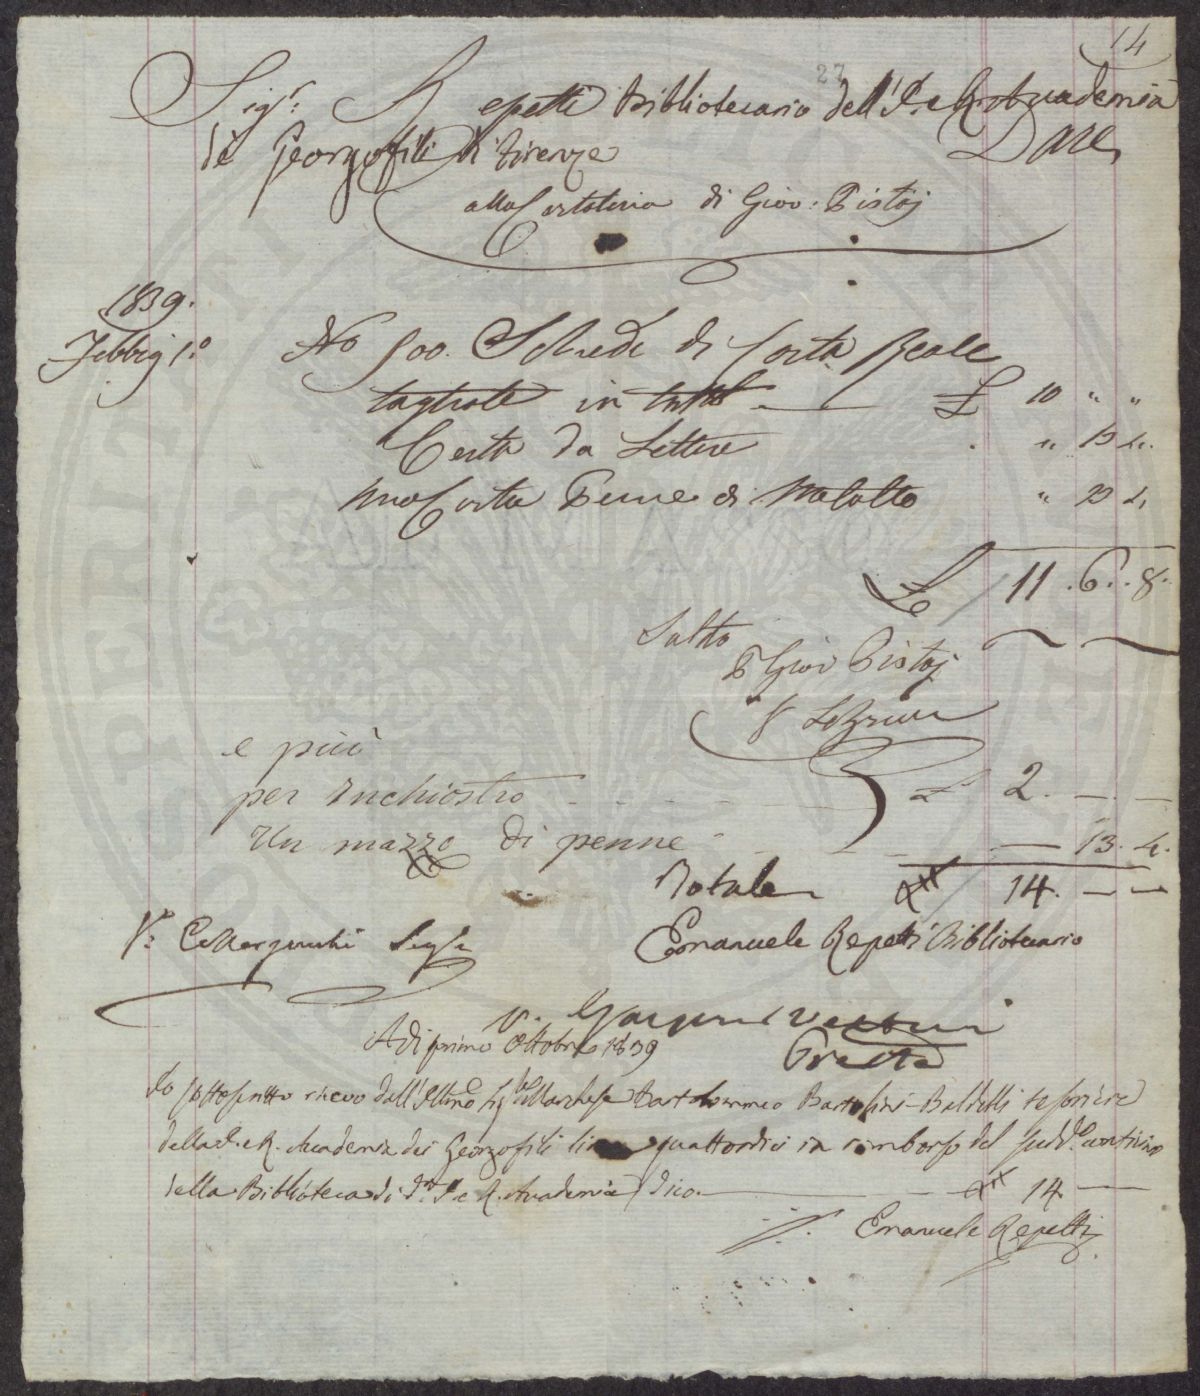 14
27
Sigr. Repetti Bibliotecario dell'I. e R. Accademia
de Georgofili di Firenze Dare
alla Cartoleria di Giov: Pistoj
1839.
Febbrj 1.º No 500. Schede di Carta Reale
tagliate in tutto £ 10 " "
Carta da Lettere " 13 4.
una Carta Penne di " 13 4.
£ 11. 6. 8.
Saldo
P Giov Pistoj
e più
per Inchiostro £ 2. — —
Un mazzo di penne — 13. 4.
Totale 14. — —
Emanuele Repetti Bibliotecario
V.
Adi primo Ottobre 1839
Io sottoscritto ricevo dall'Illmo Sige Marchese Bartolommeo Bartolini-Baldelli tesoriere
della I. e R. Accademia dei Georgofili lire quattordici in rimborso del sudd.o conticino
della Biblioteca di d.ta I. e R. Accademia dico — 14. —
Emanuele Repetti